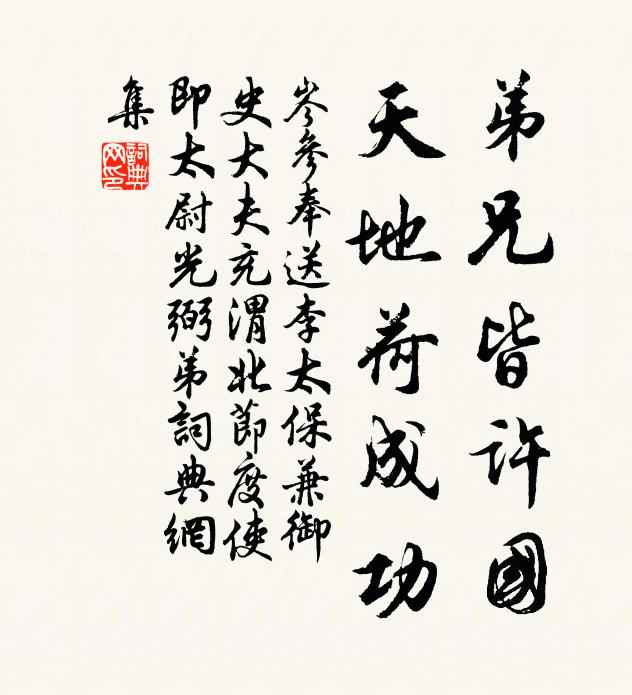 弟兄皆許國
天地荷成功
岑參奉送李太保兼御
史大夫充渭北節度使
即太尉光弼弟詞典網
集
詞典
网印